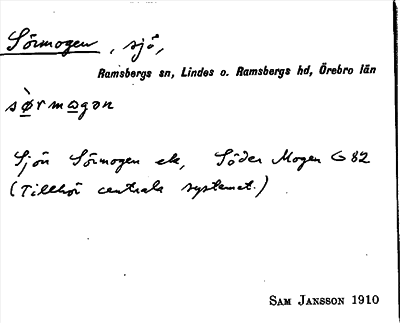 Sörmogen, sjö,
Ramsbergs sn, Lindes o. Ramsbergs hd, Örebro län
sø̀rmo̲gən
Sjön Sörmogen ek, Söder Mogen G 82
(Tillhör centrala systemet.)
SAM JANSSON 1910